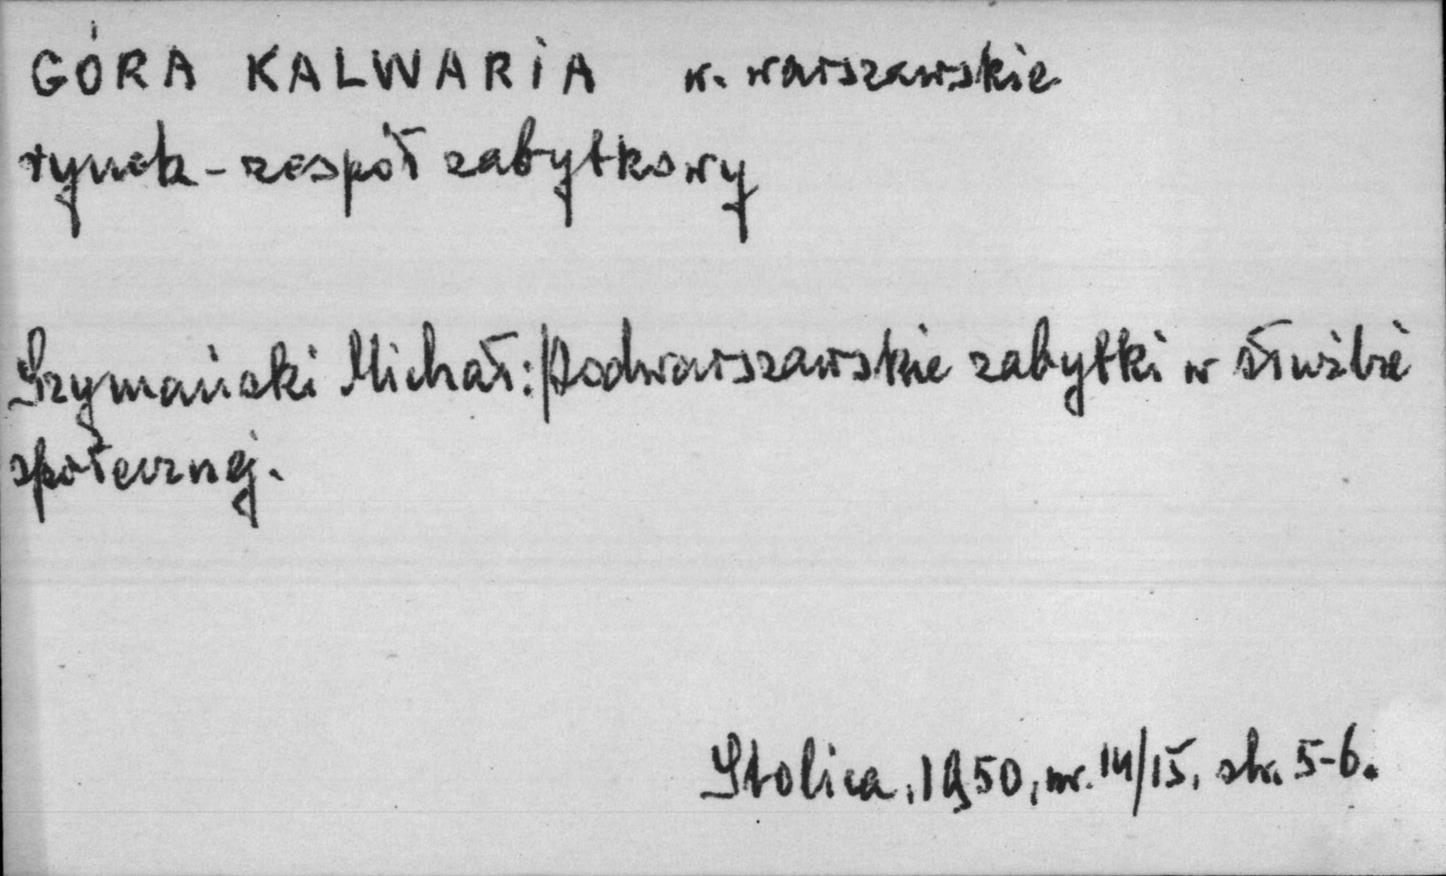 GÓRA KALWARIA w. warszawskie
rynek - zespół zabytkowy
Szymański Michał: Podwarszawskie zabytki w służbie
społecznej.
Stolica, 1950, nr. 14/15, str. 5-6.